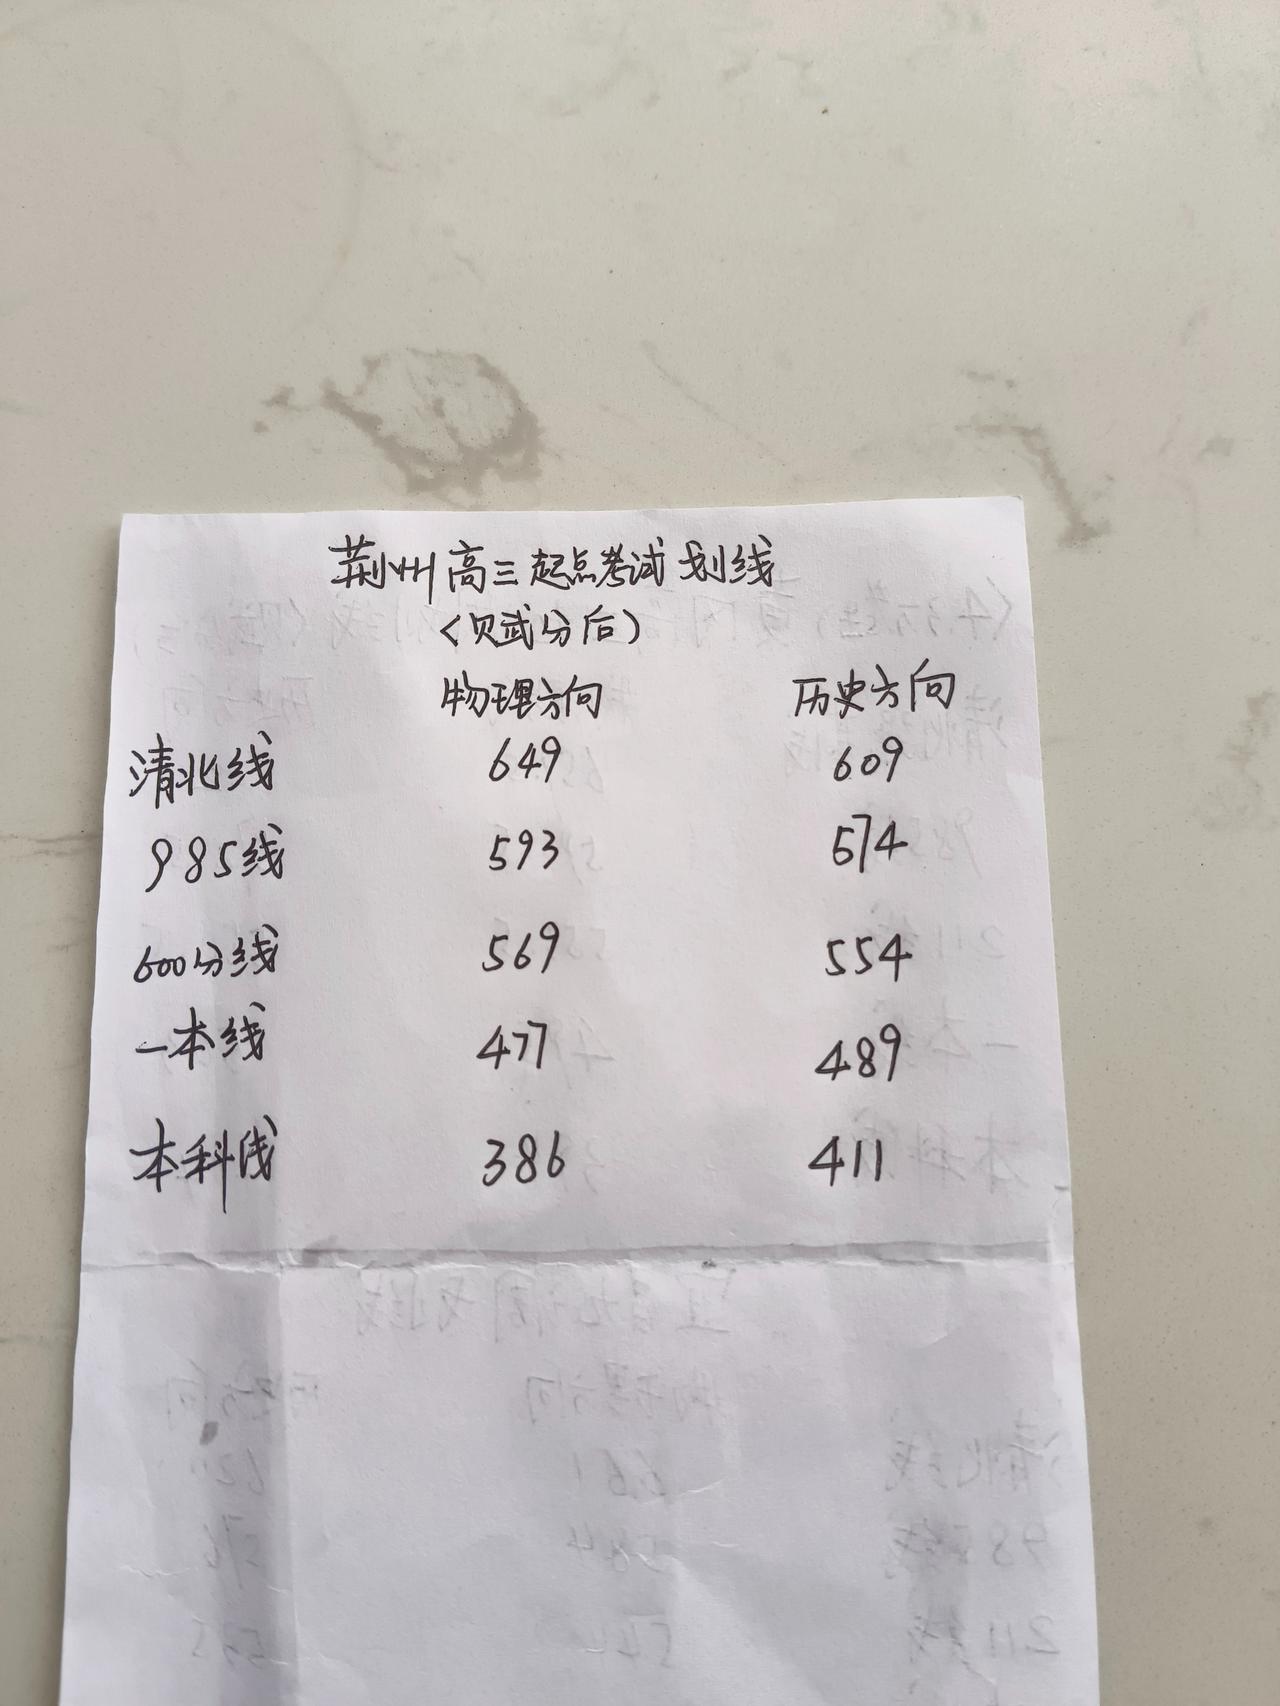 荆州高三起点考试划线
(赋分后)
物理方向 历史方向
清北线 649 609
985线 593 574
600分线 569 554
一本线 477 489
本科线 386 411